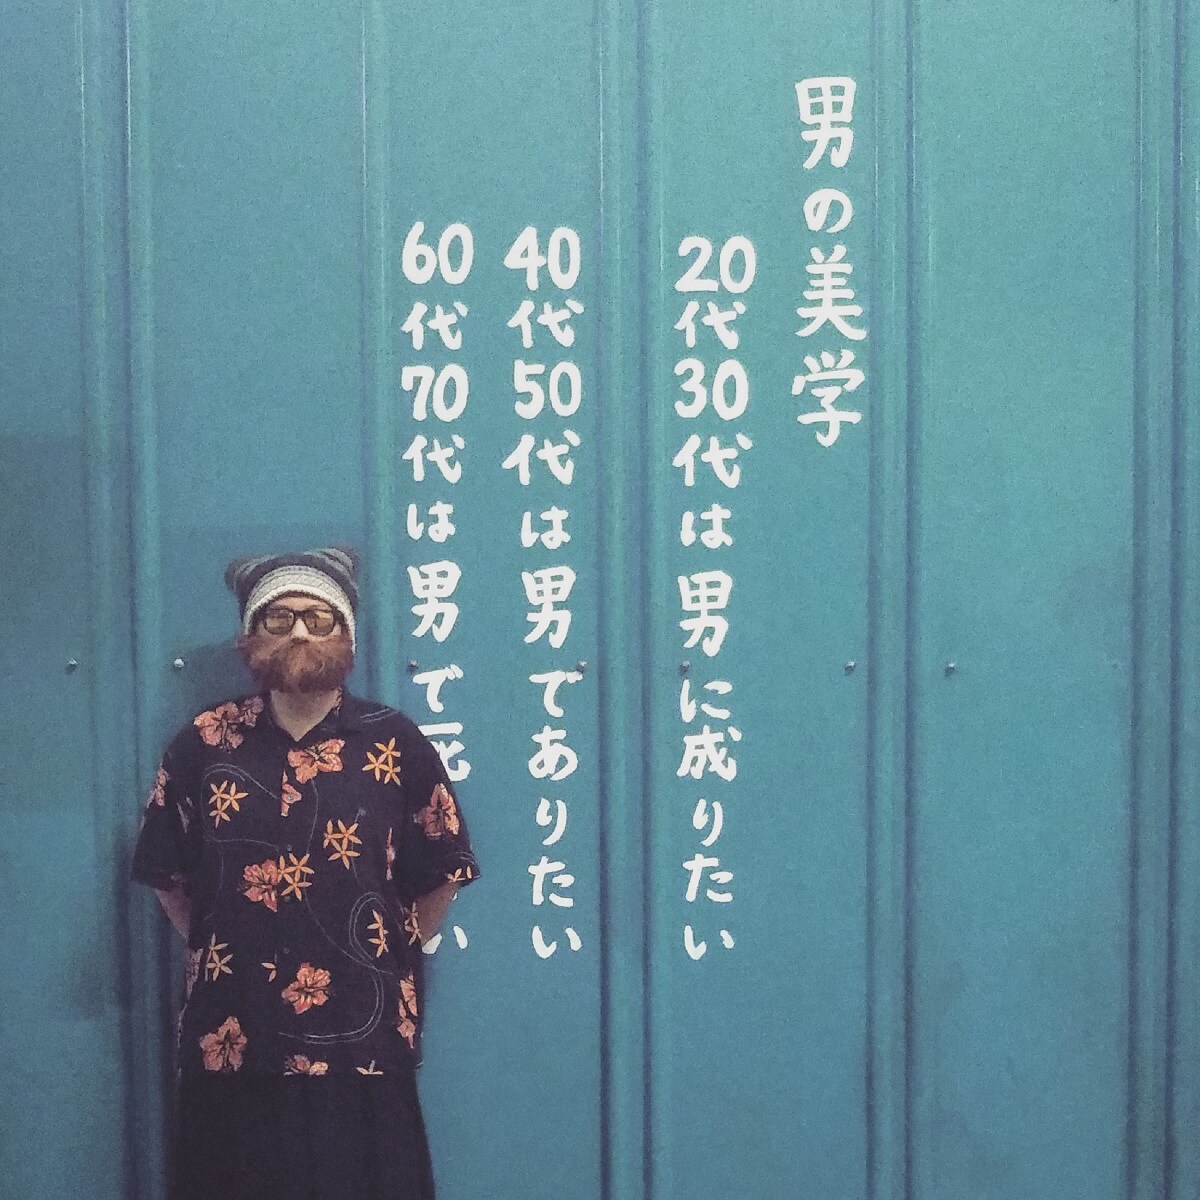 男の美学
20代30代は男に成りたい
40代50代は男でありたい
60代70代は男で死 い